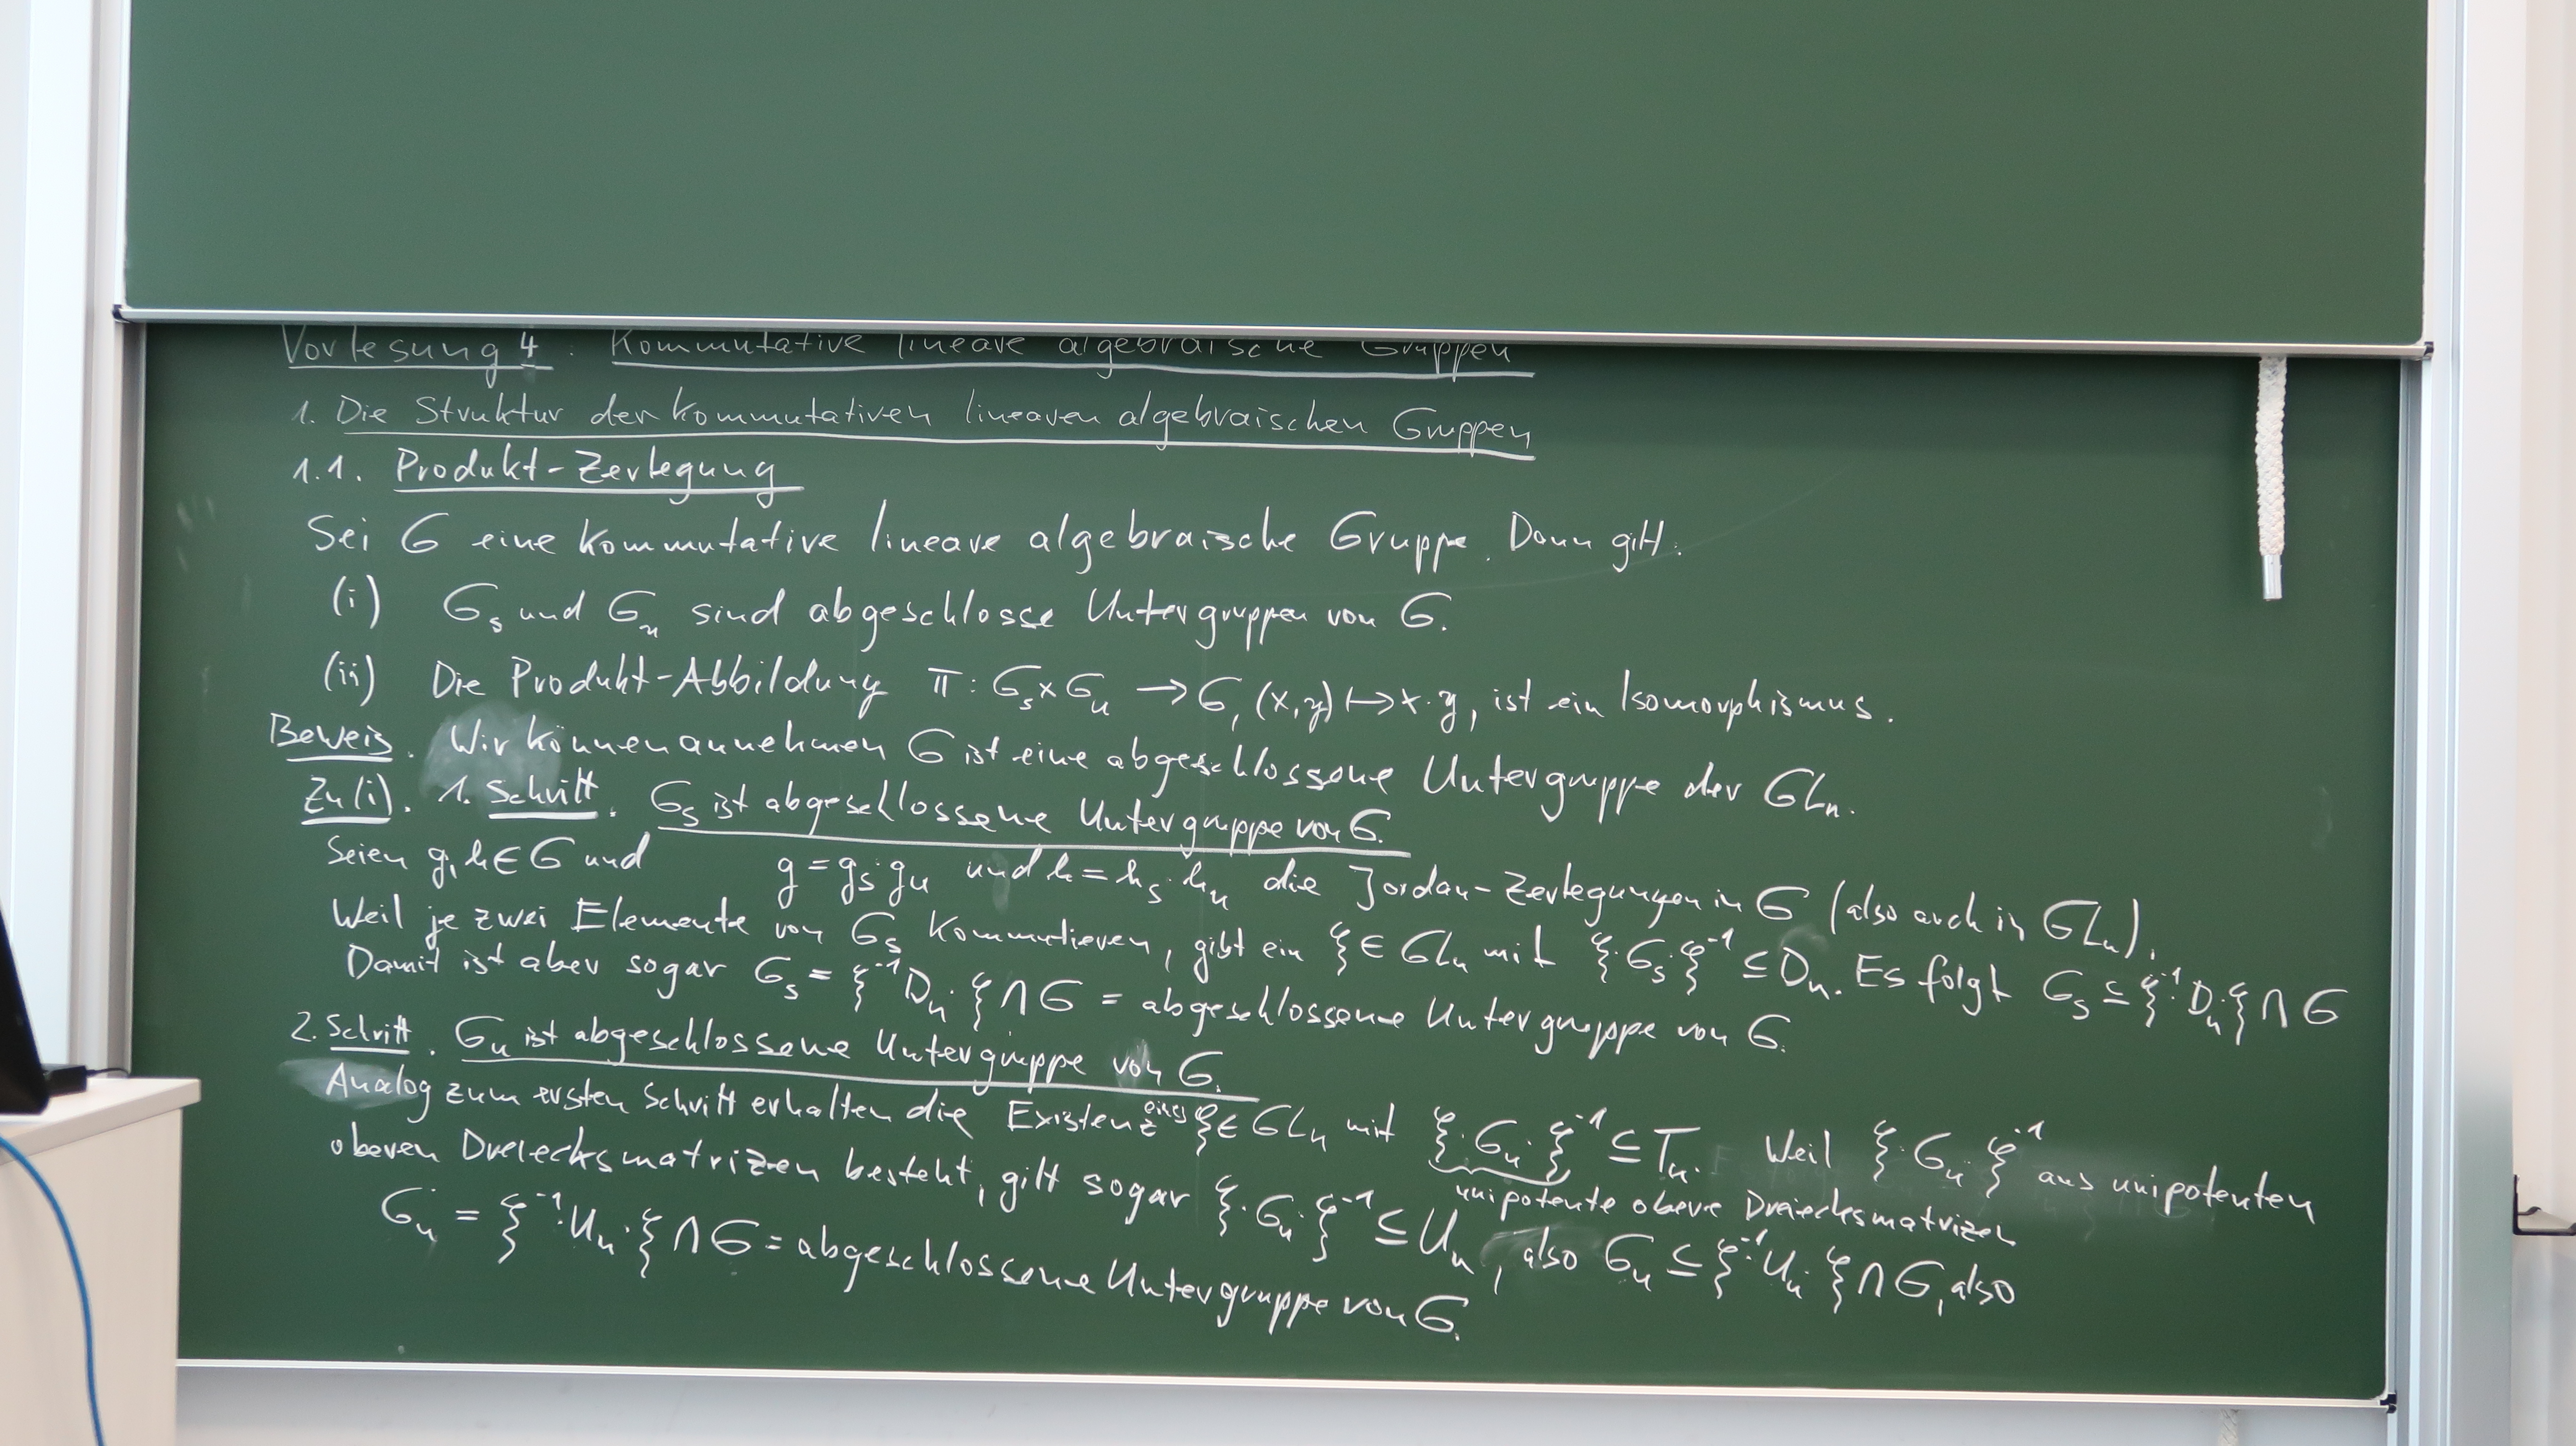 Vorlesung 4. Kommutative lineare algebraische Gruppen
1. Die Struktur der kommutativen linearen algebraischen Gruppen
1.1. Produkt-Zerlegung
Sei G eine kommutative lineare algebraische Gruppe. Dann gilt.
(i) G_s und G_u sind abgeschlosse Untergruppen von G.
(ii) Die Produkt-Abbildung π: G_s × G_u → G, (x,y) ↦ x·y, ist ein Isomorphismus.
Beweis. Wir können annehmen G ist eine abgeschlossene Untergruppe der GL_n.
Zu (i). 1. Schritt. G_s ist abgeschlossene Untergruppe von G.
Seien g, h ∈ G und g = g_s·g_u und h = h_s·h_u die Jordan-Zerlegungen in G (also auch in GL_n).
Weil je zwei Elemente von G_s kommutieren, gibt ein ξ ∈ GL_n mit ξ·G_s·ξ^{-1} ⊆ D_n. Es folgt G_s ⊆ ξ^{-1}·D_n·ξ ∩ G
Damit ist aber sogar G_s = ξ^{-1}·D_n·ξ ∩ G = abgeschlossene Untergruppe von G.
2. Schritt. G_u ist abgeschlossene Untergruppe von G.
Analog zum ersten Schritt erhalten die Existenz eines ξ ∈ GL_n mit ξ·G_u·ξ^{-1} ⊆ T_n. Weil ξ·G_u·ξ^{-1} aus unipotenten
unipotente obere Dreiecksmatrizen
oberen Dreiecksmatrizen besteht, gilt sogar ξ·G_u·ξ^{-1} ⊆ U_n, also G_u ⊆ ξ^{-1}·U_n·ξ ∩ G, also
G_u = ξ^{-1}·U_n·ξ ∩ G = abgeschlossene Untergruppe von G.